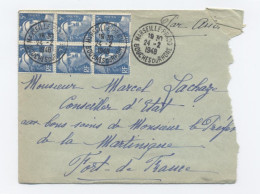 MARSEILLE
24-2
1948
BOUCHES DU RHONE
Par Avion
Monsieur Marcel Lachaze
Conseiller d'Etat
aux bons soins de Monsieur le Préfet
de la Martinique
Fort-de-France